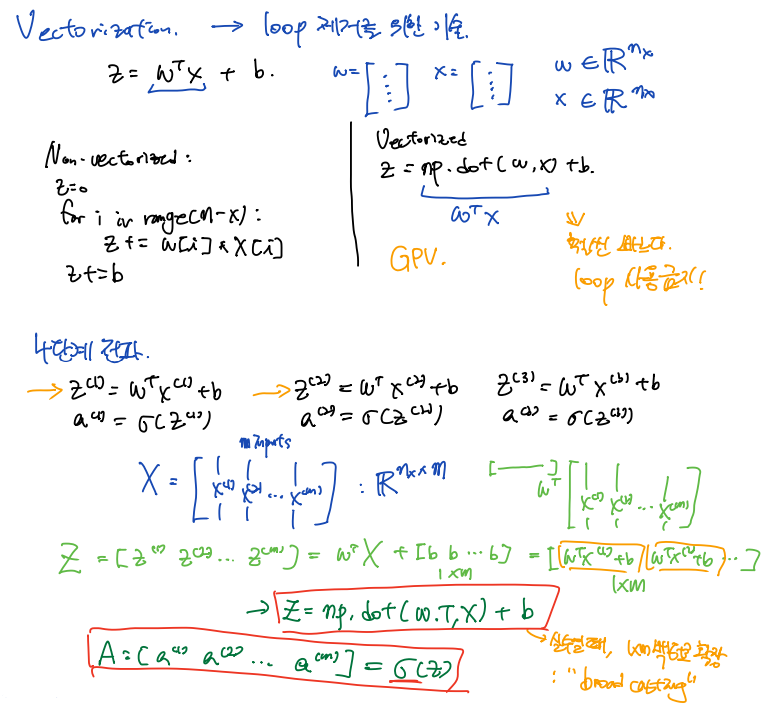 Vectorization. → loop 제거를 위한 기술.
z = wᵀx + b.
w = [⋮] x = [⋮]
w ∈ ℝⁿˣ
x ∈ ℝⁿˣ
Non-vectorized:
z=0
for i in range(n-x):
z += w[i] * x[i]
z+=b
Vectorized
z = np.dot(w,x) + b.
wᵀx
GPU.
⇒ 훨씬 빠르다.
loop 사용금지!
→ z⁽¹⁾ = wᵀx⁽¹⁾+b
a⁽¹⁾ = σ(z⁽¹⁾)
→ z⁽²⁾ = wᵀx⁽²⁾+b
a⁽²⁾ = σ(z⁽²⁾)
z⁽³⁾ = wᵀx⁽³⁾+b
a⁽³⁾ = σ(z⁽³⁾)
m inputs
X = [x⁽¹⁾ x⁽²⁾ ... x⁽ᵐ⁾] : ℝⁿˣ ˣ ᵐ
wᵀ [x⁽¹⁾ x⁽²⁾ ... x⁽ᵐ⁾]
Z = [z⁽¹⁾ z⁽²⁾ ... z⁽ᵐ⁾] = wᵀX + [b b ... b] = [(wᵀx⁽¹⁾+b) (wᵀx⁽²⁾+b) ...]
1×m
1×m
→ Z = np.dot(w.T, X) + b
→ 실수일때, 1×m 벡터로 확장
: "broadcasting"
A = [a⁽¹⁾ a⁽²⁾ ... a⁽ᵐ⁾] = σ(Z)